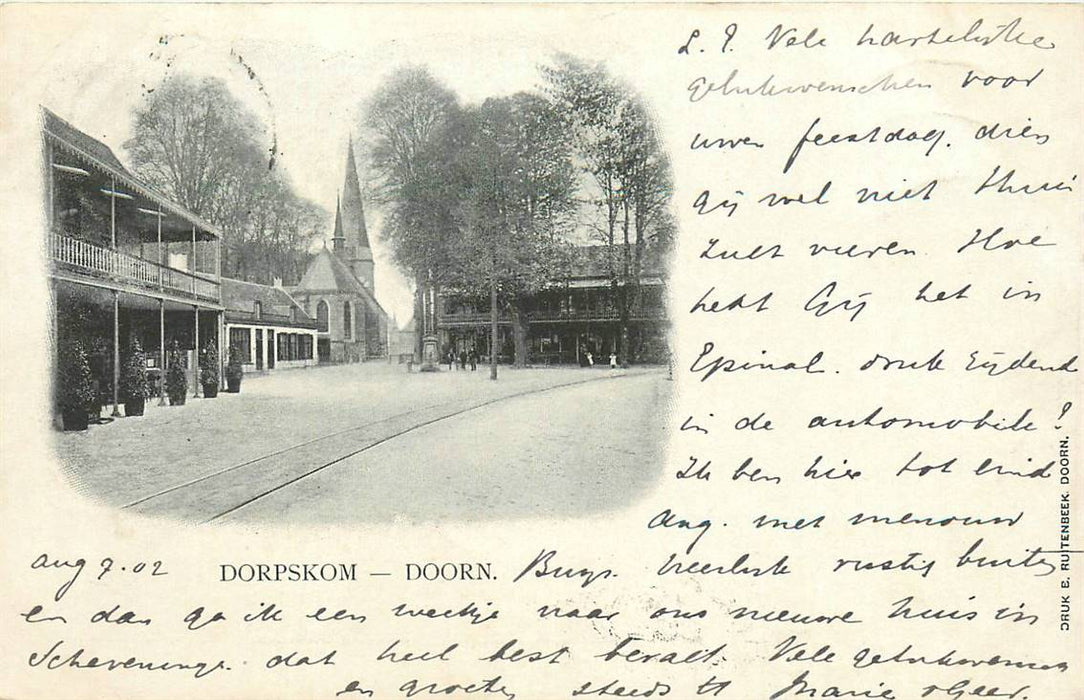 L. P. Vele hartelijke
gelukwenschen voor
uwen feestdag, dien
gij wel niet thuis
zult vieren. Hoe
hebt Gij het in
Epinal. druk rijdend
in de automobile?
Ik ben hier tot eind
Aug. met mevrouw
aug 7. 02
DORPSKOM — DOORN.
Buys. heerlijk rustig buiten
en dan ga ik een weekje naar ons nieuwe huis in
Scheveningen. dat heel best bevalt. Vele gelukwenschen
en groeten steeds Marie
DRUK E. RUITENBEEK. DOORN.